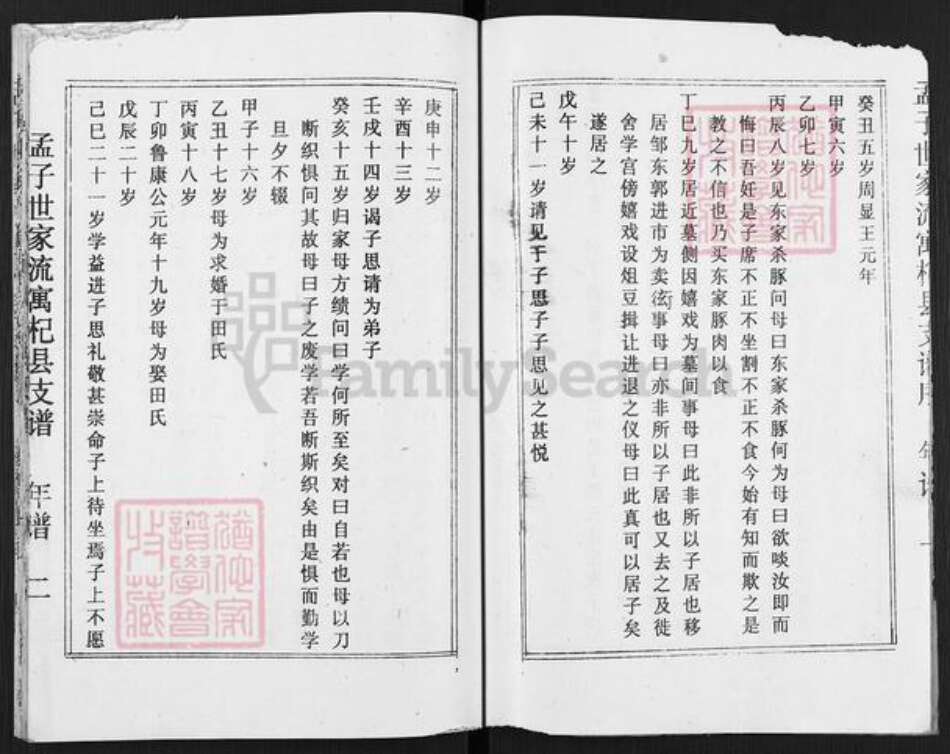 孟子世家流寓杞县支谱 年谱 一
癸丑五岁周显王元年
甲寅六岁
乙卯七岁
丙辰八岁见东家杀豚问母曰东家杀豚何为母曰欲啖汝即而
悔曰吾妊是子席不正不坐割不正不食今始有知而欺之是
教之不信也乃买东家豚肉以食
丁巳九岁居近墓侧因嬉戏为墓间事母曰此非所以子居也移
居邹东郭进市为卖衒事母曰亦非所以子居也又去之及徙
舍学宫傍嬉戏设俎豆揖让进退之仪母曰此真可以居子矣
遂居之
戊午十岁
己未十一岁请见于子思子子思见之甚悦
庚申十二岁
辛酉十三岁
壬戌十四岁谒子思请为弟子
癸亥十五岁归家母方绩问曰学何所至矣对曰自若也母以刀
断织惧问其故母曰子之废学若吾断斯织矣由是惧而勤学
旦夕不辍
甲子十六岁
乙丑十七岁母为求婚于田氏
丙寅十八岁
丁卯鲁康公元年十九岁母为娶田氏
戊辰二十岁
己巳二十一岁学益进子思礼敬甚崇命子上待坐焉子上不愿
孟子世家流寓杞县支谱 年谱 二
FamilySearch